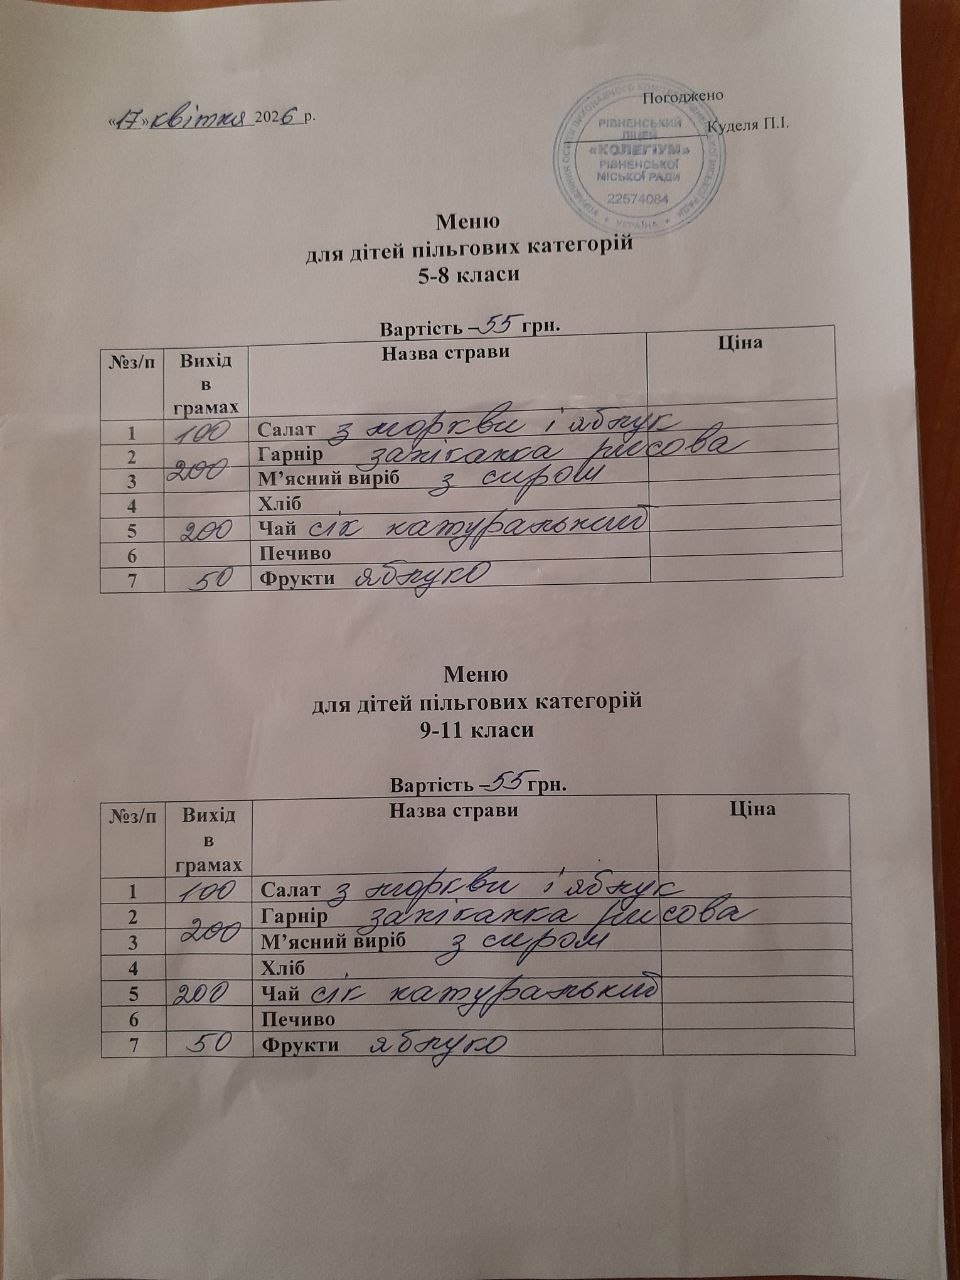 «17» квітня 2026 р.
Погоджено
Куделя П.І.
РІВНЕНСЬКИЙ
ЛІЦЕЙ
«КОЛЕГІУМ»
РІВНЕНСЬКОЇ
МІСЬКОЇ РАДИ
22574084
УКРАЇНА
Меню
для дітей пільгових категорій
5-8 класи
Вартість –55 грн.
№з/п Вихід в грамах Назва страви Ціна
1 100 Салат з моркви і яблук
2 Гарнір запіканка рисова
3 200 М’ясний виріб з сиром
4 Хліб
5 200 Чай сік натуральний
6 Печиво
7 50 Фрукти яблуко
Меню
для дітей пільгових категорій
9-11 класи
Вартість –55 грн.
№з/п Вихід в грамах Назва страви Ціна
1 100 Салат з моркви і яблук
2 Гарнір запіканка рисова
3 200 М’ясний виріб з сиром
4 Хліб
5 200 Чай сік натуральний
6 Печиво
7 50 Фрукти яблуко